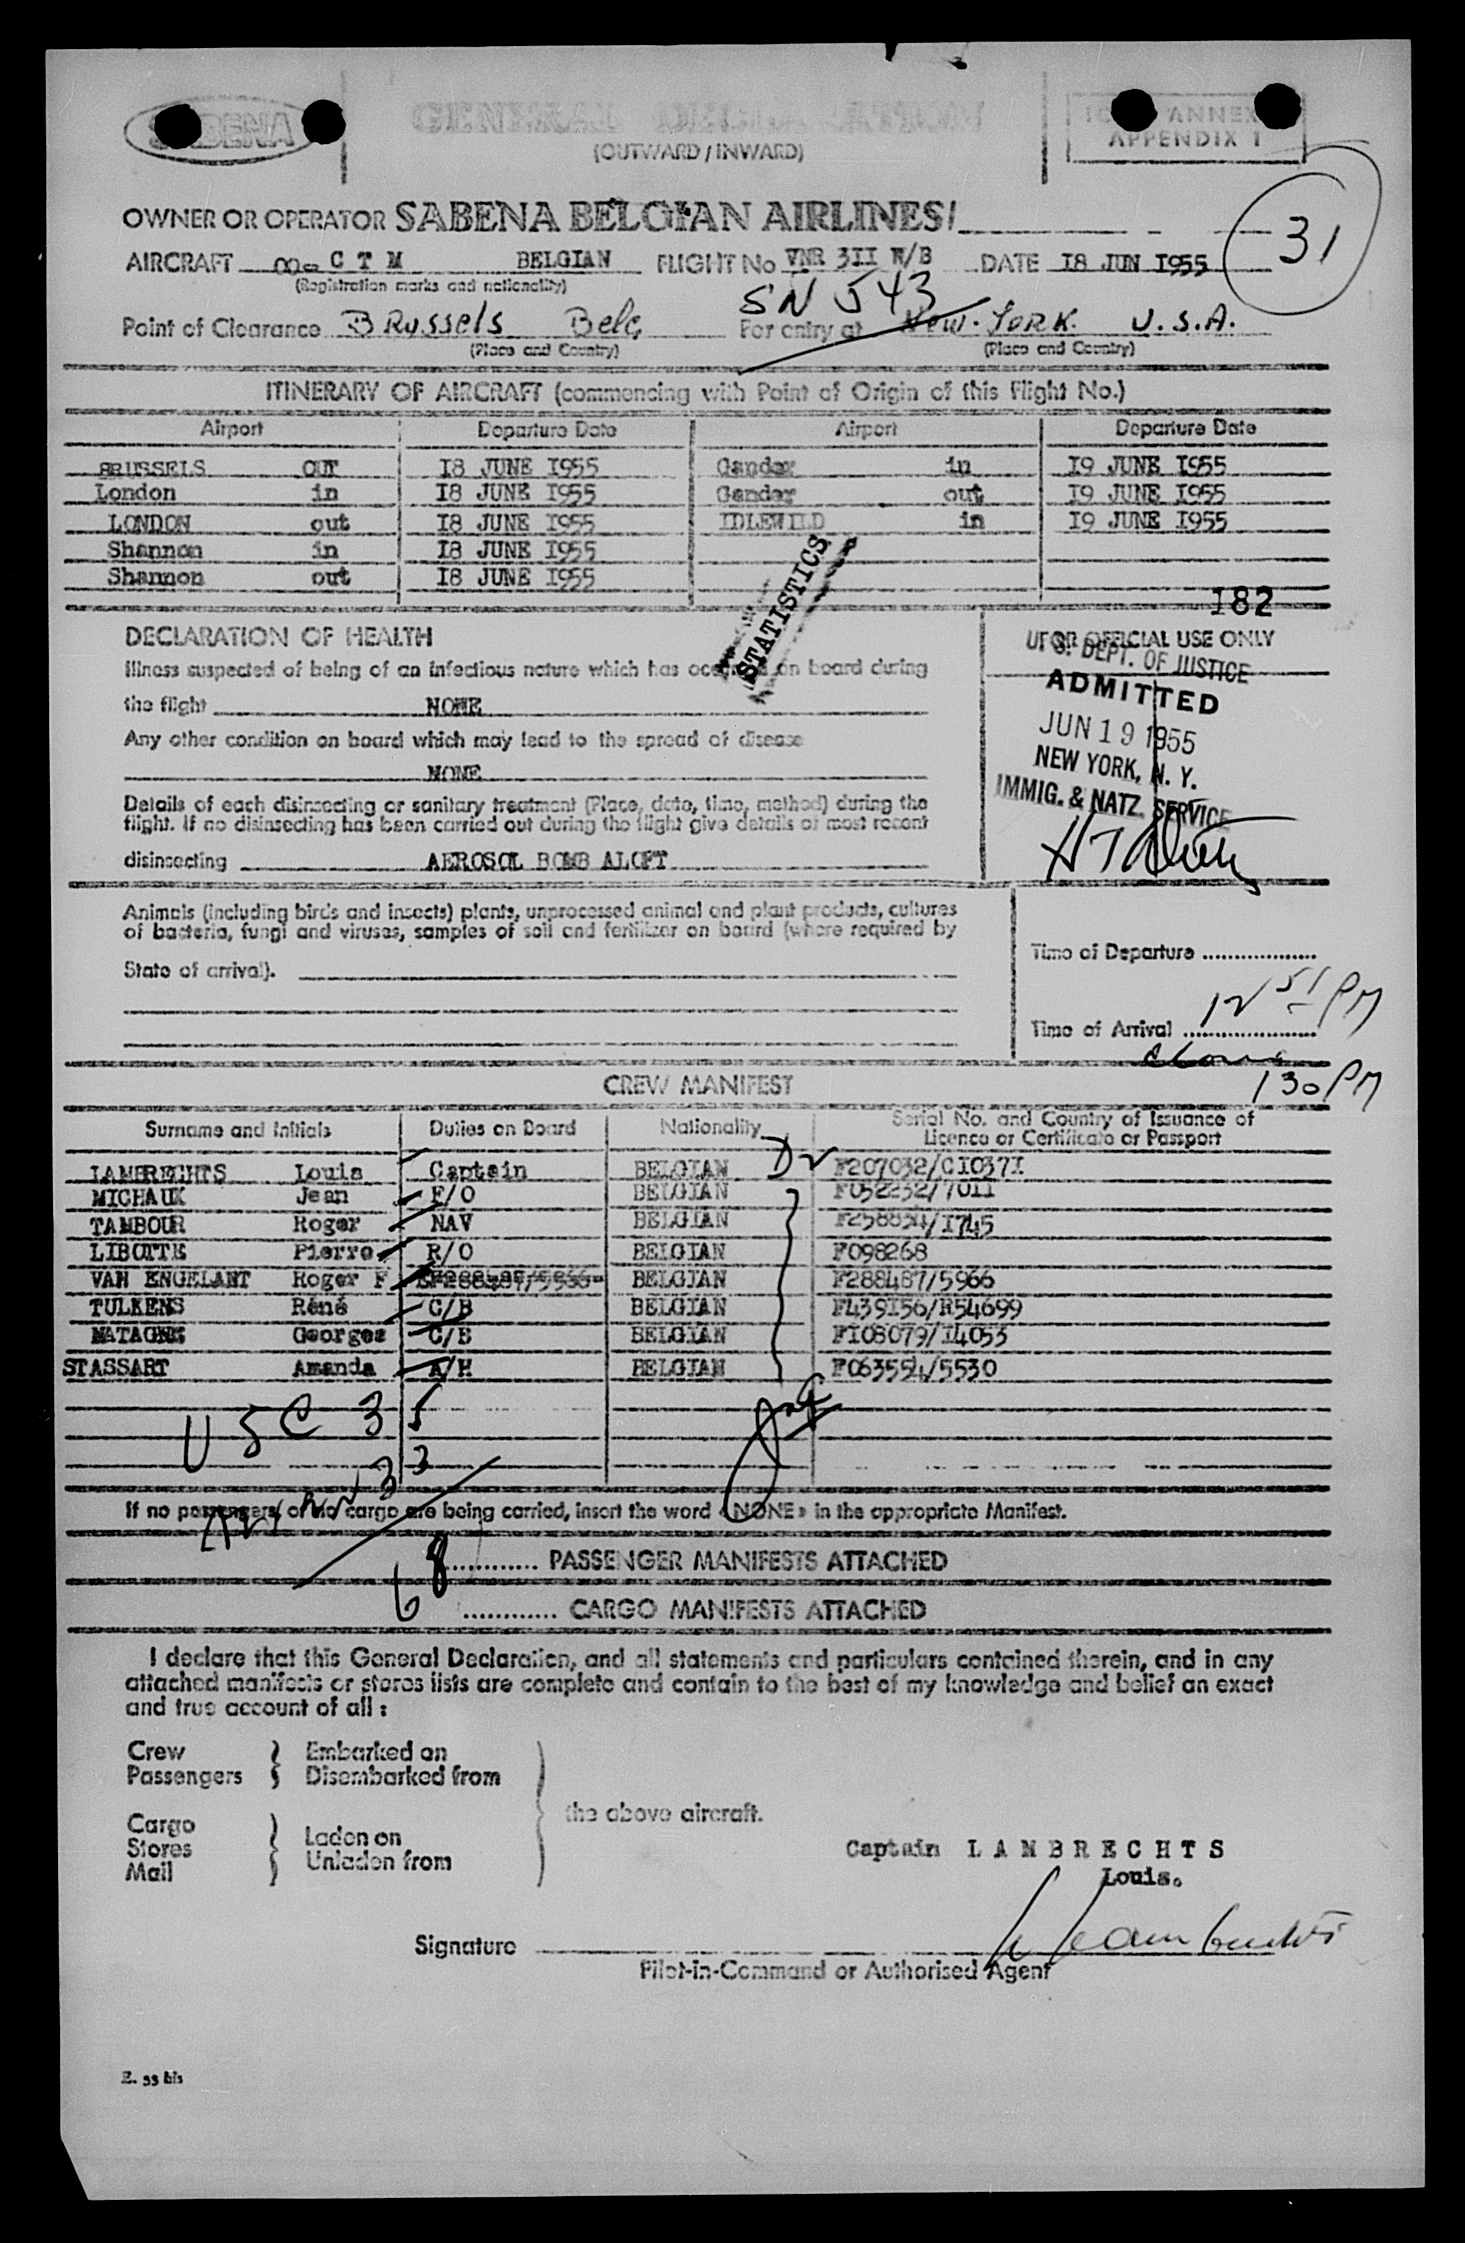 SABENA
GENERAL DECLARATION
(OUTWARD / INWARD)
ANNEX
APPENDIX 1
31
OWNER OR OPERATOR SABENA BELGIAN AIRLINES
AIRCRAFT OO- C T M BELGIAN FLIGHT No VNR 3II W/B DATE I8 JUN I955
(Registration marks and nationality)
SN 543
Point of Clearance BRussels Belg. For entry at New-York. U.S.A.
(Place and Country) (Place and Country)
ITINERARY OF AIRCRAFT (commencing with Point of Origin of this Flight No.)
Airport Departure Date Airport Departure Date
BRUSSELS OUT I8 JUNE I955 Gander in I9 JUNE I955
London in I8 JUNE I955 Gander out I9 JUNE I955
LONDON out I8 JUNE I955 IDLEWILD in I9 JUNE I955
Shannon in I8 JUNE I955
Shannon out I8 JUNE I955
STATISTICS
182
DECLARATION OF HEALTH
FOR OFFICIAL USE ONLY
Illness suspected of being of an infectious nature which has occurred on board during
the flight NONE
Any other condition on board which may lead to the spread of disease
NONE
Details of each disinsecting or sanitary treatment (Place, date, time, method) during the
flight. If no disinsecting has been carried out during the flight give details of most recent
disinsecting AEROSOL BOMB ALOFT
U. S. DEPT. OF JUSTICE
ADMITTED
JUN 19 1955
NEW YORK, N. Y.
IMMIG. & NATZ. SERVICE
Animals (including birds and insects) plants, unprocessed animal and plant products, cultures
of bacteria, fungi and viruses, samples of soil and fertilizer on board (where required by
State of arrival).
Time of Departure
12 51 PM
Time of Arrival
130 PM
CREW MANIFEST
Surname and Initials Duties on Board Nationality Serial No. and Country of Issuance of
Licence or Certificate or Passport
LAMBRECHTS Louis Captain BELGIAN F207032/CI037I
MICHAUX Jean F/O BELGIAN F052232/70II
TAMBOUR Roger NAV BELGIAN F258834/I745
LIBOTTE Pierre R/O BELGIAN F098268
VAN ENGELANT Roger F F288487/5966 BELGIAN F288487/5966
TULKENS Réné C/B BELGIAN F439I56/R54699
MATAGNE Georges C/B BELGIAN FI08079/I4053
STASSART Amanda A/H BELGIAN F063554/5530
USC 35
33
If no passengers or no cargo are being carried, insert the word « NONE » in the appropriate Manifest.
68
PASSENGER MANIFESTS ATTACHED
CARGO MANIFESTS ATTACHED
I declare that this General Declaration, and all statements and particulars contained therein, and in any
attached manifests or stores lists are complete and contain to the best of my knowledge and belief an exact
and true account of all :
Crew
Passengers
Embarked on
Disembarked from
Cargo
Stores
Mail
Laden on
Unladen from
the above aircraft.
Captain L A M B R E C H T S
Louis.
Signature L Lambrechts
Pilot-in-Command or Authorised Agent
E. 33 bis